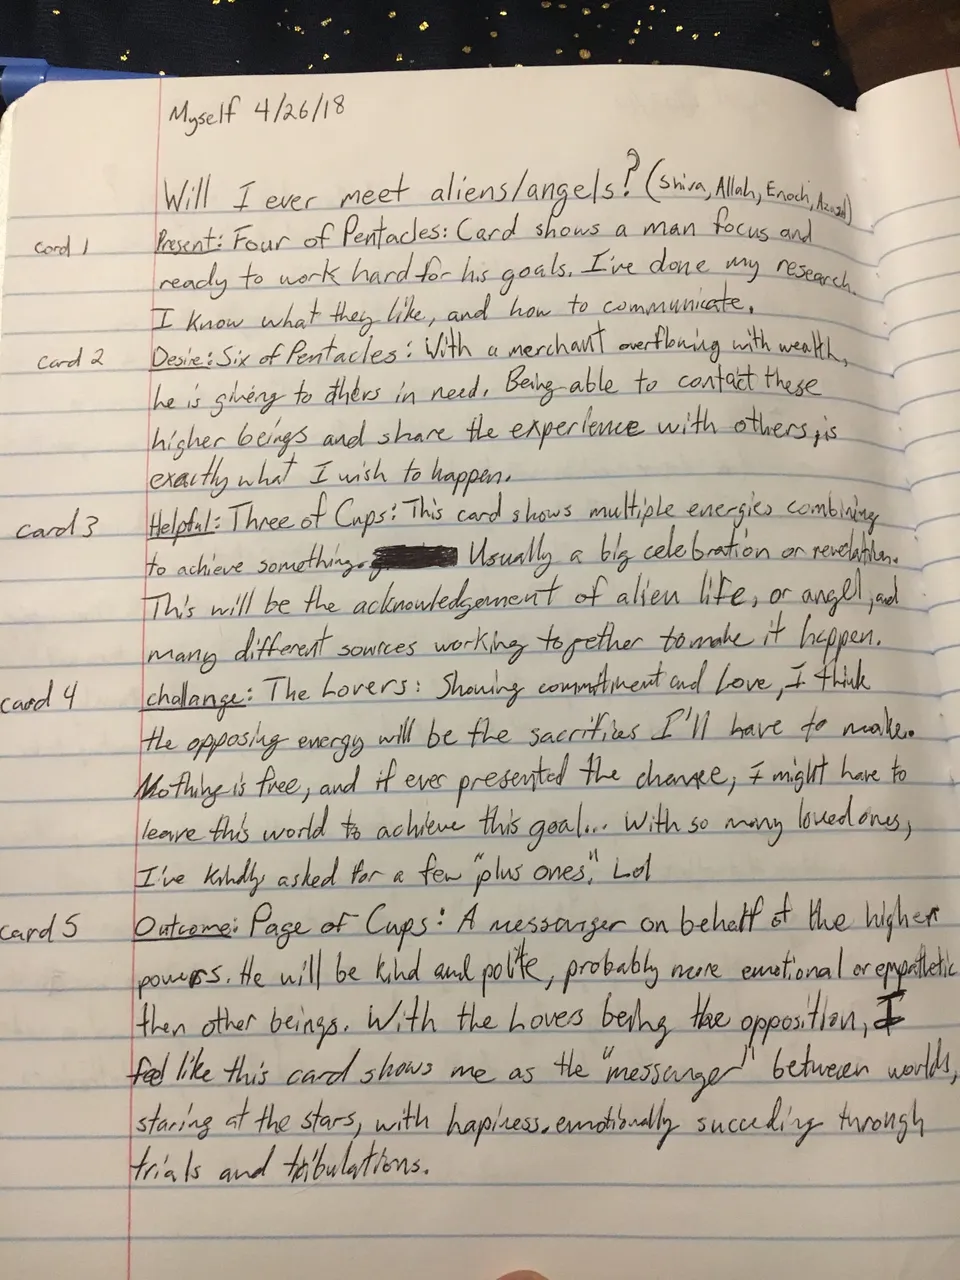 Myself 4/26/18
Will I ever meet aliens/angels? (Shiva, Allah, Enoch,
card 1 Present: Four of Pentacles: Card shows a man focus and
ready to work hard for his goals. I've done my research.
I know what they like, and how to communicate.
card 2 Desire: Six of Pentacles: With a merchant overflowing with wealth,
he is giving to others in need. Being able to contact these
higher beings and share the experience with others, is
exactly what I wish to happen.
card 3 Helpful: Three of Cups: This card shows multiple energies combining
to achieve something. Usually a big celebration or revelation.
This will be the acknowledgement of alien life, or angel, and
many different sources working together to make it happen.
card 4 challange: The Lovers: Showing committment and Love, I think
the opposing energy will be the sacrifices I'll have to make.
Nothing is free, and if ever presented the chance, I might have to
leave this world to achieve this goal... With so many loved ones,
I've kindly asked for a few "plus ones". Lol
card 5 Outcome: Page of Cups: A messanger on behalf of the higher
powers. He will be kind and polite, probably more emotional or empathetic
then other beings. With the Lovers being the opposition, I
feel like this card shows me as the "messanger" between worlds,
staring at the stars, with hapiness. emotionally succeding through
trials and tribulations.